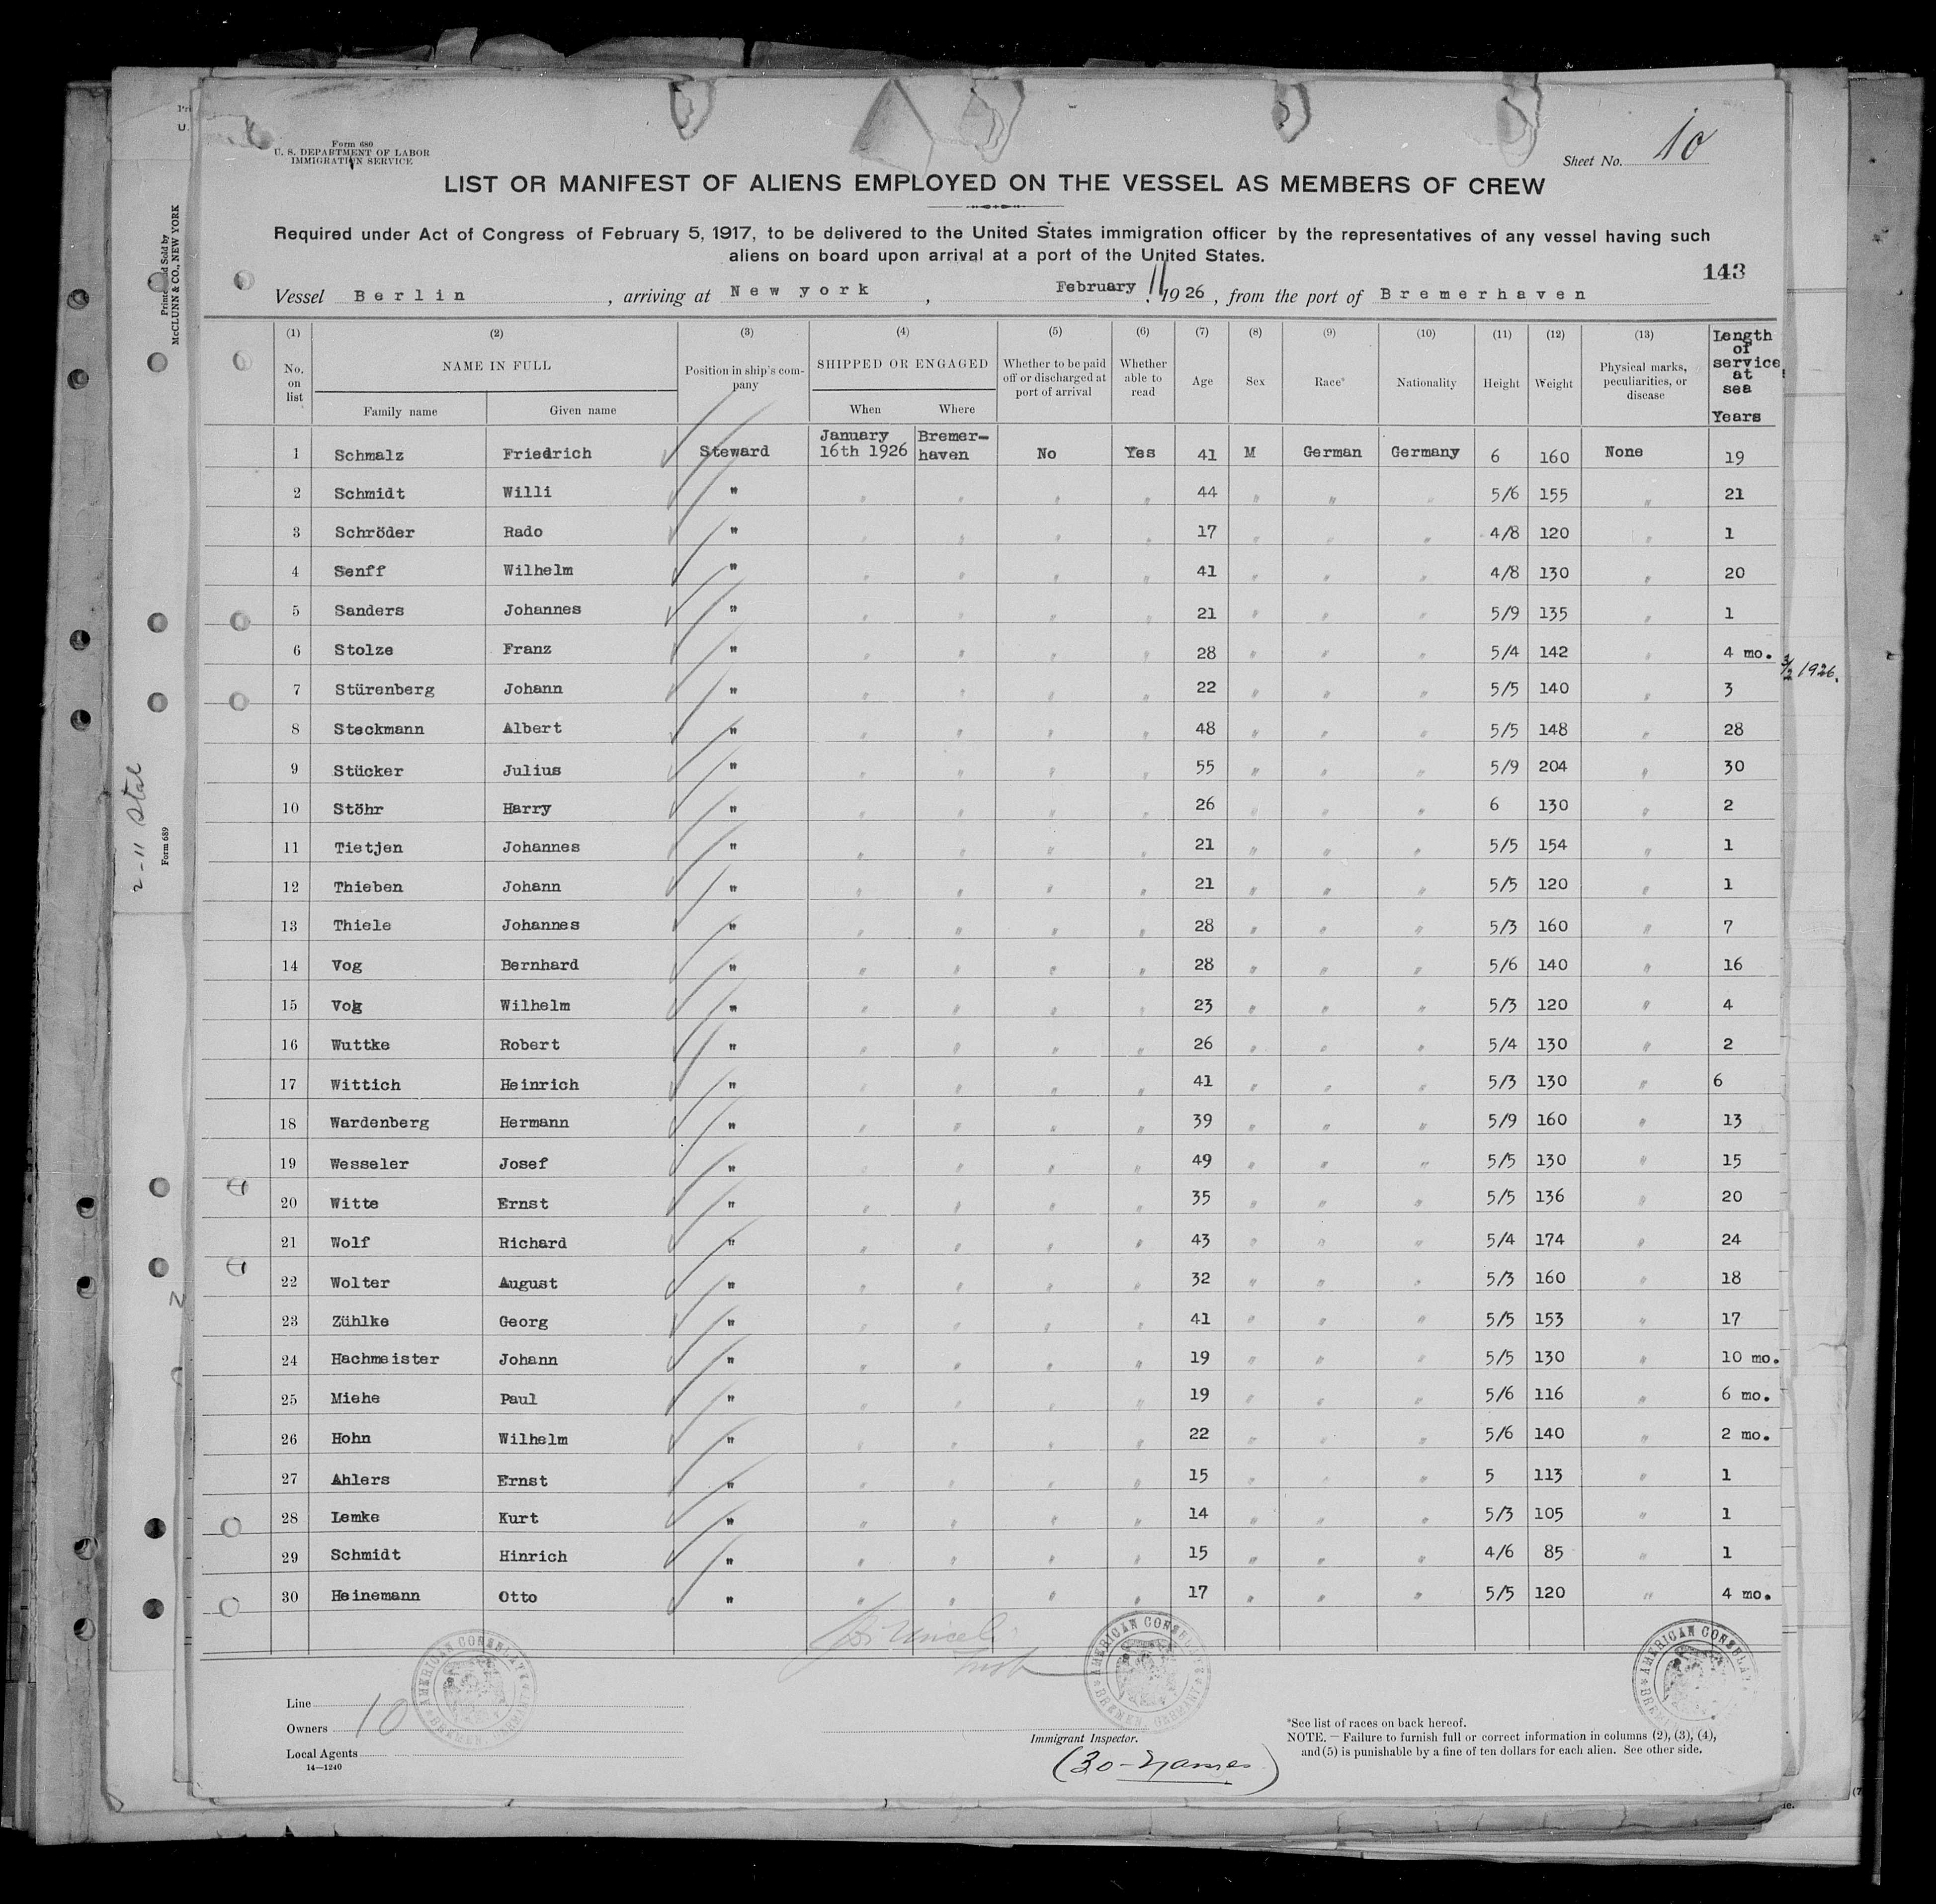 Form 680
U. S. DEPARTMENT OF LABOR
IMMIGRATION SERVICE
Sheet No. 10
LIST OR MANIFEST OF ALIENS EMPLOYED ON THE VESSEL AS MEMBERS OF CREW
Required under Act of Congress of February 5, 1917, to be delivered to the United States immigration officer by the representatives of any vessel having such
aliens on board upon arrival at a port of the United States.
143
Vessel Berlin, arriving at New york, February 11, 1926, from the port of Bremerhaven
(1) (2) (3) (4) (5) (6) (7) (8) (9) (10) (11) (12) (13)
No. on list NAME IN FULL Family name Given name Position in ship's company SHIPPED OR ENGAGED When Where Whether to be paid off or discharged at port of arrival Whether able to read Age Sex Race* Nationality Height Weight Physical marks, peculiarities, or disease Length of service at sea Years
1 Schmalz Friedrich Steward January 16th 1926 Bremer-haven No Yes 41 M German Germany 6 160 None 19
2 Schmidt Willi " " " " " 44 " " " 5/6 155 " 21
3 Schröder Rado " " " " " 17 " " " 4/8 120 " 1
4 Senff Wilhelm " " " " " 41 " " " 4/8 130 " 20
5 Sanders Johannes " " " " " 21 " " " 5/9 135 " 1
6 Stolze Franz " " " " " 28 " " " 5/4 142 " 4 mo.
7 Stürenberg Johann " " " " " 22 " " " 5/5 140 " 3
8 Steckmann Albert " " " " " 48 " " " 5/5 148 " 28
9 Stücker Julius " " " " " 55 " " " 5/9 204 " 30
10 Stöhr Harry " " " " " 26 " " " 6 130 " 2
11 Tietjen Johannes " " " " " 21 " " " 5/5 154 " 1
12 Thieben Johann " " " " " 21 " " " 5/5 120 " 1
13 Thiele Johannes " " " " " 28 " " " 5/3 160 " 7
14 Vog Bernhard " " " " " 28 " " " 5/6 140 " 16
15 Vog Wilhelm " " " " " 23 " " " 5/3 120 " 4
16 Wuttke Robert " " " " " 26 " " " 5/4 130 " 2
17 Wittich Heinrich " " " " " 41 " " " 5/3 130 " 6
18 Wardenberg Hermann " " " " " 39 " " " 5/9 160 " 13
19 Wesseler Josef " " " " " 49 " " " 5/5 130 " 15
20 Witte Ernst " " " " " 35 " " " 5/5 136 " 20
21 Wolf Richard " " " " " 43 " " " 5/4 174 " 24
22 Wolter August " " " " " 32 " " " 5/3 160 " 18
23 Zühlke Georg " " " " " 41 " " " 5/5 153 " 17
24 Hachmeister Johann " " " " " 19 " " " 5/5 130 " 10 mo.
25 Miehe Paul " " " " " 19 " " " 5/6 116 " 6 mo.
26 Hohn Wilhelm " " " " " 22 " " " 5/6 140 " 2 mo.
27 Ahlers Ernst " " " " " 15 " " " 5 113 " 1
28 Lemke Kurt " " " " " 14 " " " 5/3 105 " 1
29 Schmidt Hinrich " " " " " 15 " " " 4/6 85 " 1
30 Heinemann Otto " " " " " 17 " " " 5/5 120 " 4 mo.
AMERICAN CONSULATE BREMEN, GERMANY
AMERICAN CONSULATE BREMEN, GERMANY
AMERICAN CONSULATE BREMEN
Line
Owners 10
Local Agents
14—1240
Immigrant Inspector.
(30-Names)
*See list of races on back hereof.
NOTE. — Failure to furnish full or correct information in columns (2), (3), (4),
and (5) is punishable by a fine of ten dollars for each alien. See other side.
Printed and Sold by
McCLUNN & CO., NEW YORK
2-11
Form 689
1926.